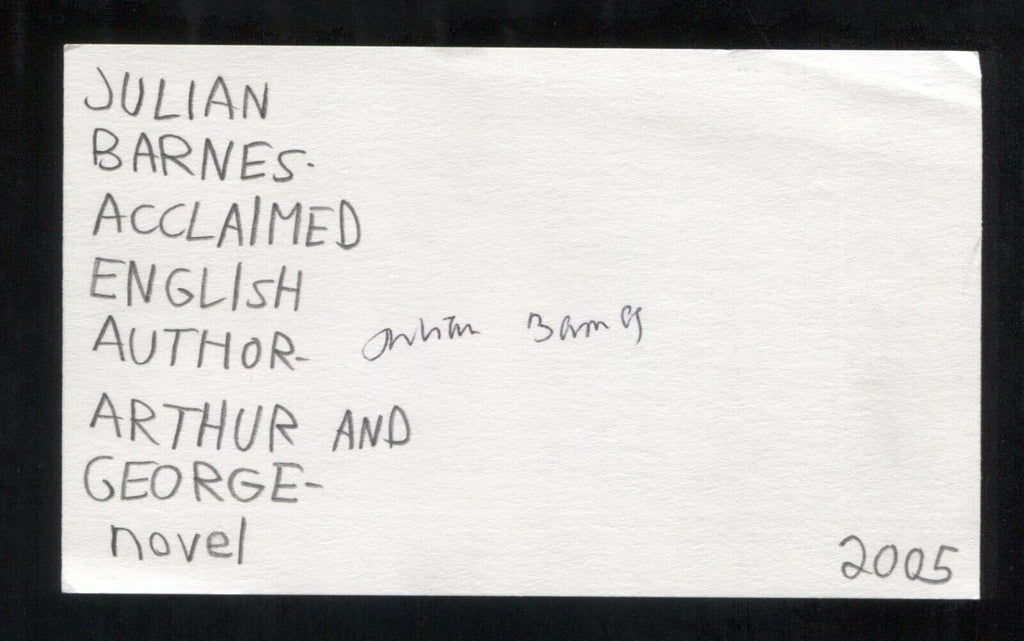 JULIAN
BARNES.
ACCLAIMED
ENGLISH
AUTHOR- Julian Barnes
ARTHUR AND
GEORGE-
novel
2005